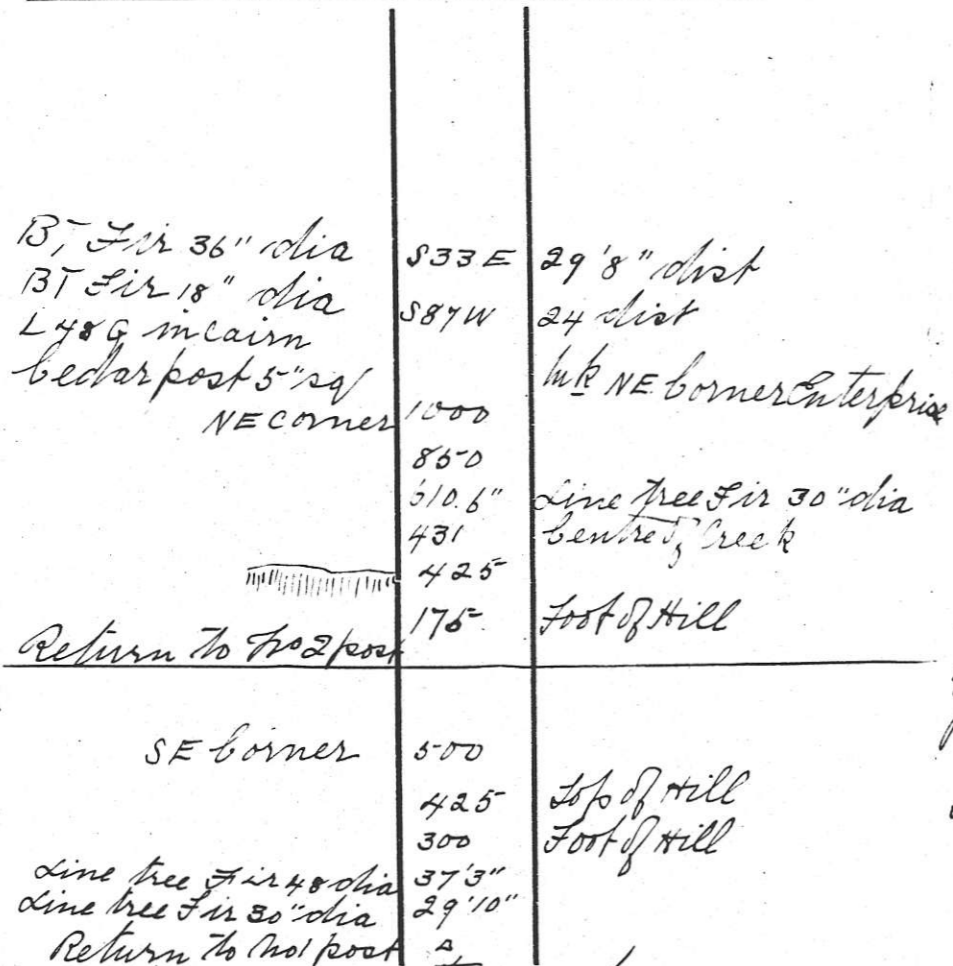 BT Fir 36" dia S33E 29'8" dist
BT Fir 18" dia S87W 24 dist
L48G in cairn
Cedar post 5" sq Mk NE Corner Enterprise
NE corner 1000
850
610.6" Line tree Fir 30" dia
431 Centre of Creek
425
175 Foot of Hill
Return to No 2 post
SE Corner 500
425 Top of Hill
300 Foot of Hill
Line tree Fir 48 dia 37'3"
Line tree Fir 30" dia 29'10"
Return to No 1 post